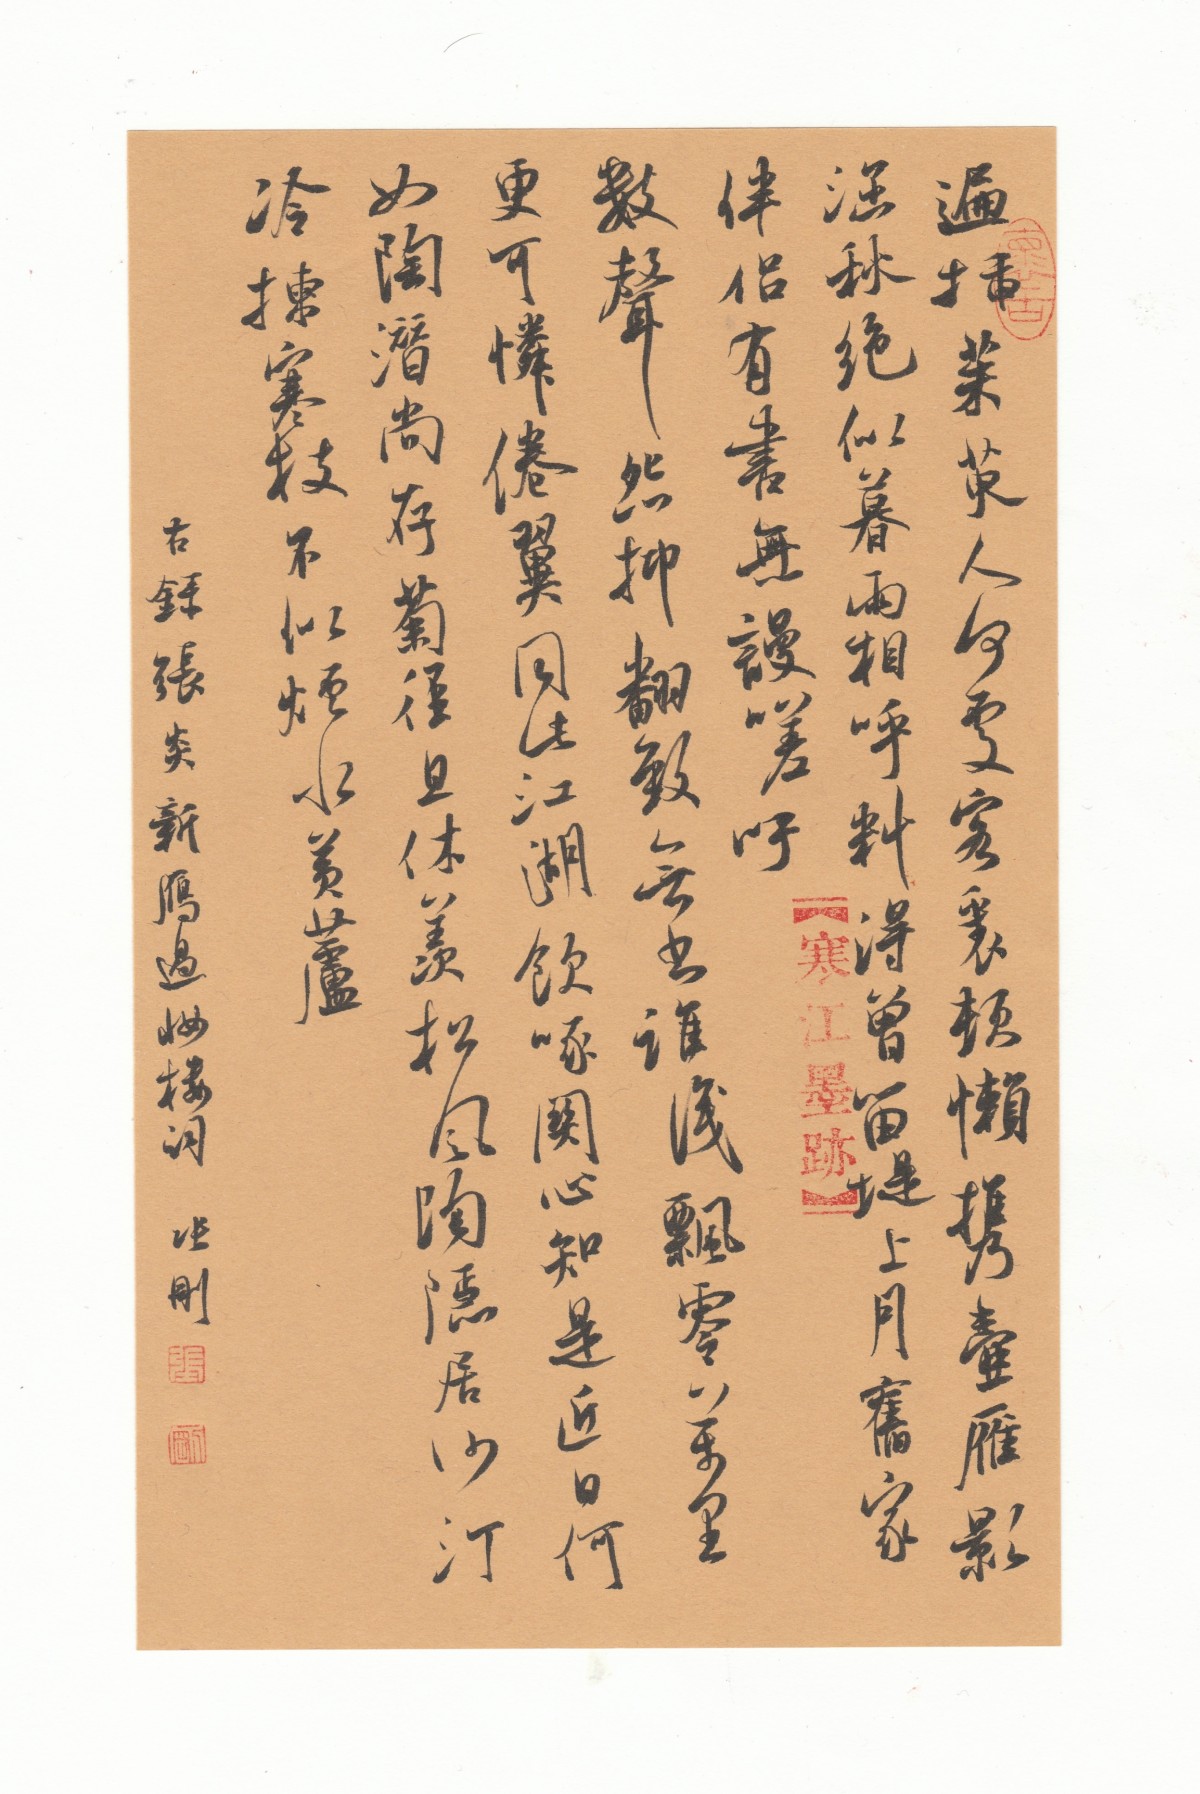 遍插茱萸人何處客裏頓懶携壺雁影
涵秋絶似暮雨相呼料得曾留堤上月舊家
伴侣有書無謾嗟吁
【寒江墨跡】
數聲怨抑翻致無書誰識飄零萬里
更可憐倦翼同此江湖飲啄関心知是近日何
如陶潛尚存菊徑且休羨松風陶隱居沙汀
冷揀寒枝不似煙水黄蘆
右録張炎新鴈過妝樓詞 張剛
張
剛